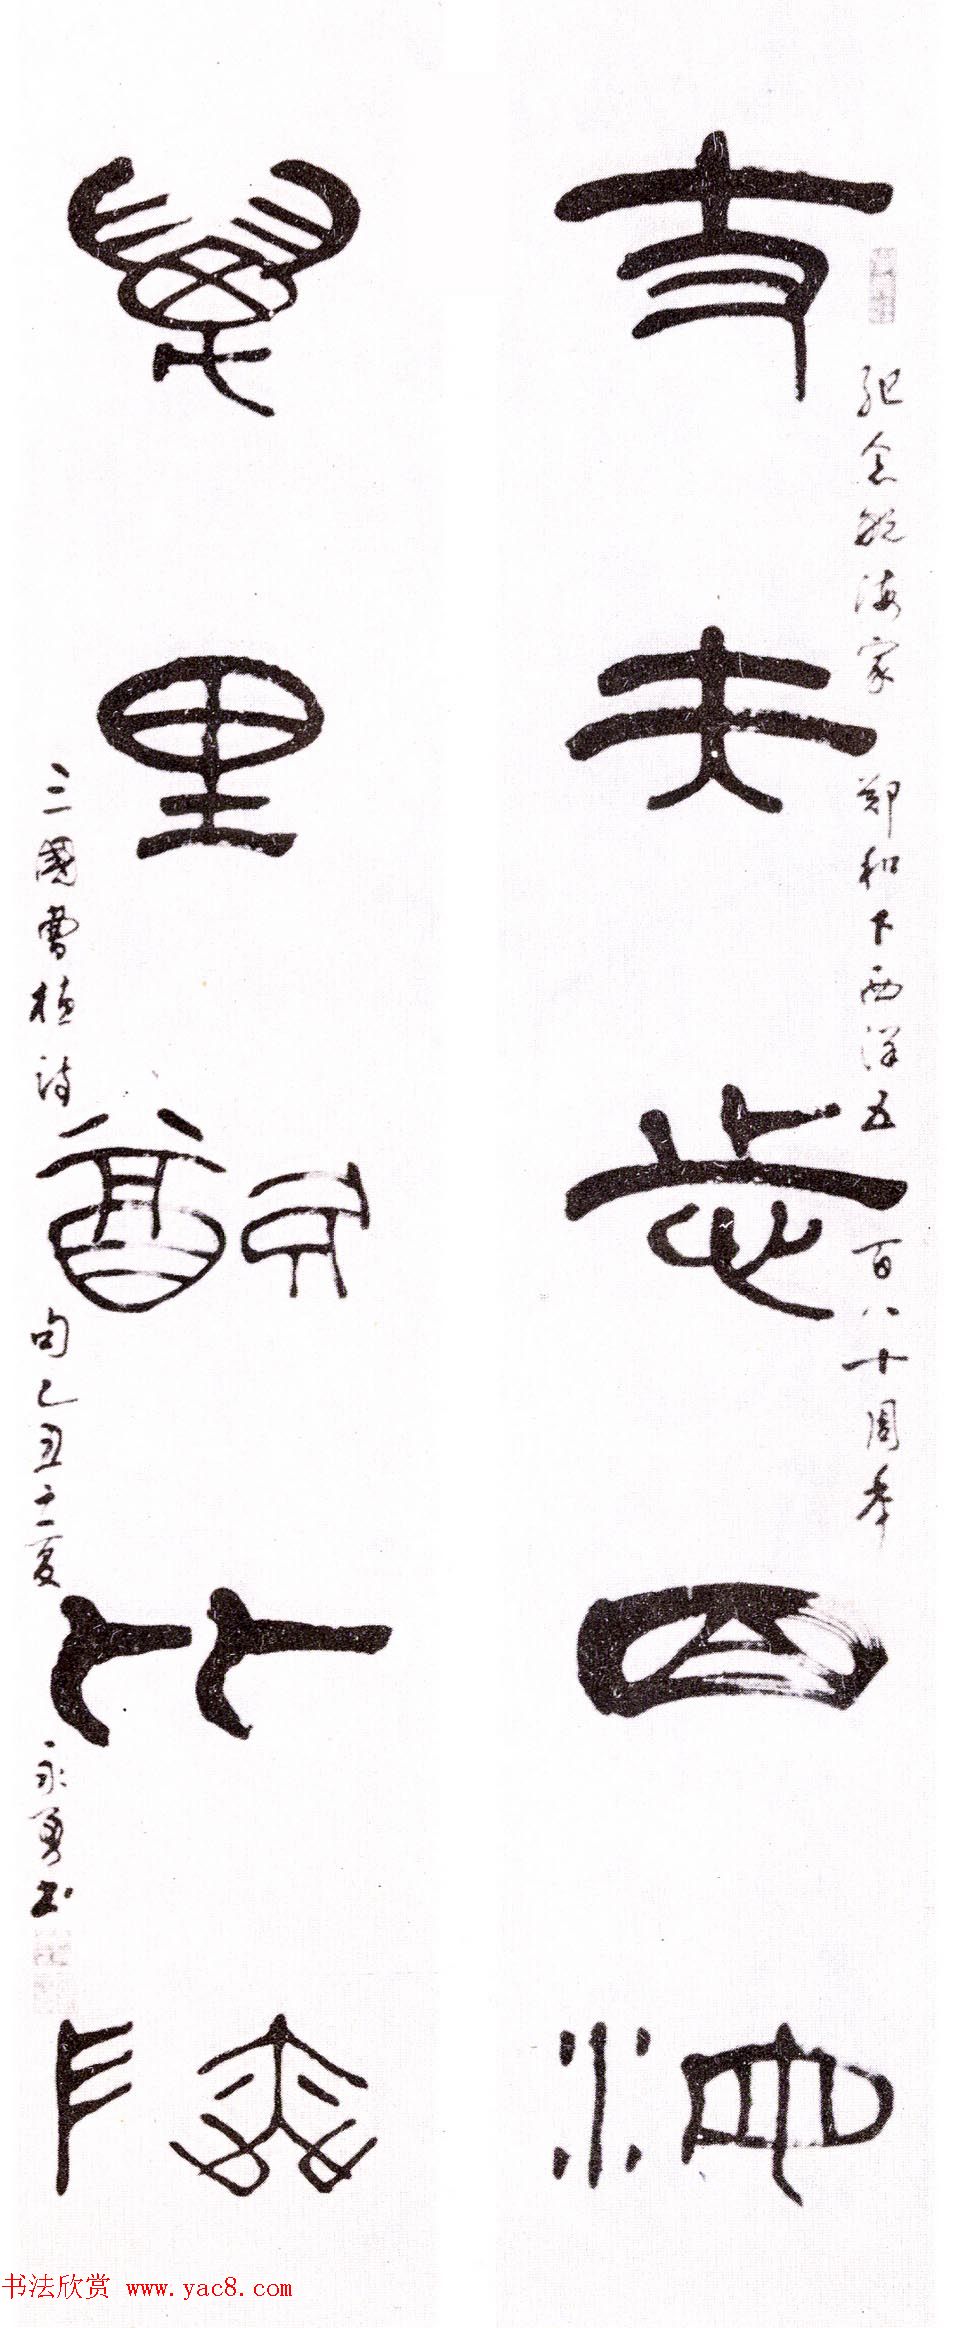 丈夫志四海
纪念航海家郑和下西洋五百八十周年
萬里猶比鄰
三國曹植诗句乙丑之夏永勇书
书法欣赏 www.yac8.com